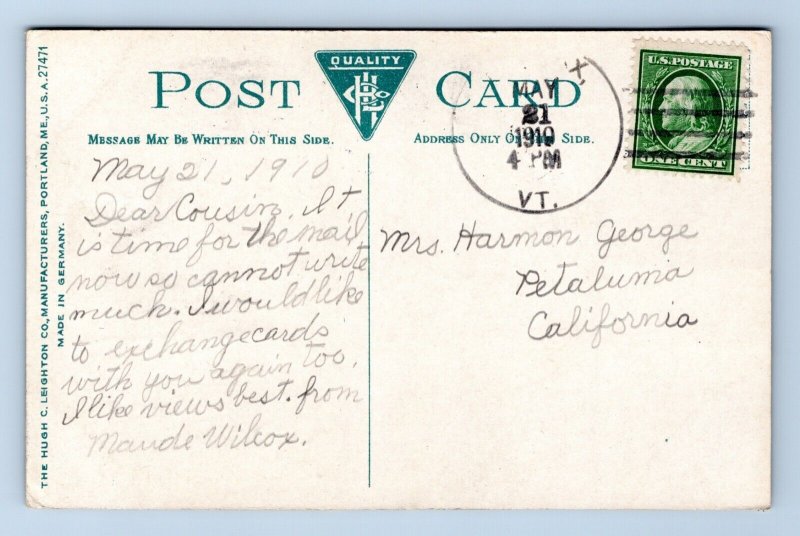 THE HUGH C. LEIGHTON CO., MANUFACTURERS, PORTLAND, ME., U.S.A. 27471
MADE IN GERMANY.
QUALITY
POST CARD
MESSAGE MAY BE WRITTEN ON THIS SIDE.
ADDRESS ONLY ON THIS SIDE.
MAY
21
1910
4 PM
VT.
U.S. POSTAGE
ONE CENT
May 21, 1910
Dear Cousin. It
is time for the mail
now so cannot write
much. I would like
to exchange cards
with you again too.
I like views best. from
Maude Wilcox.
Mrs. Harmon George
Petaluma
California